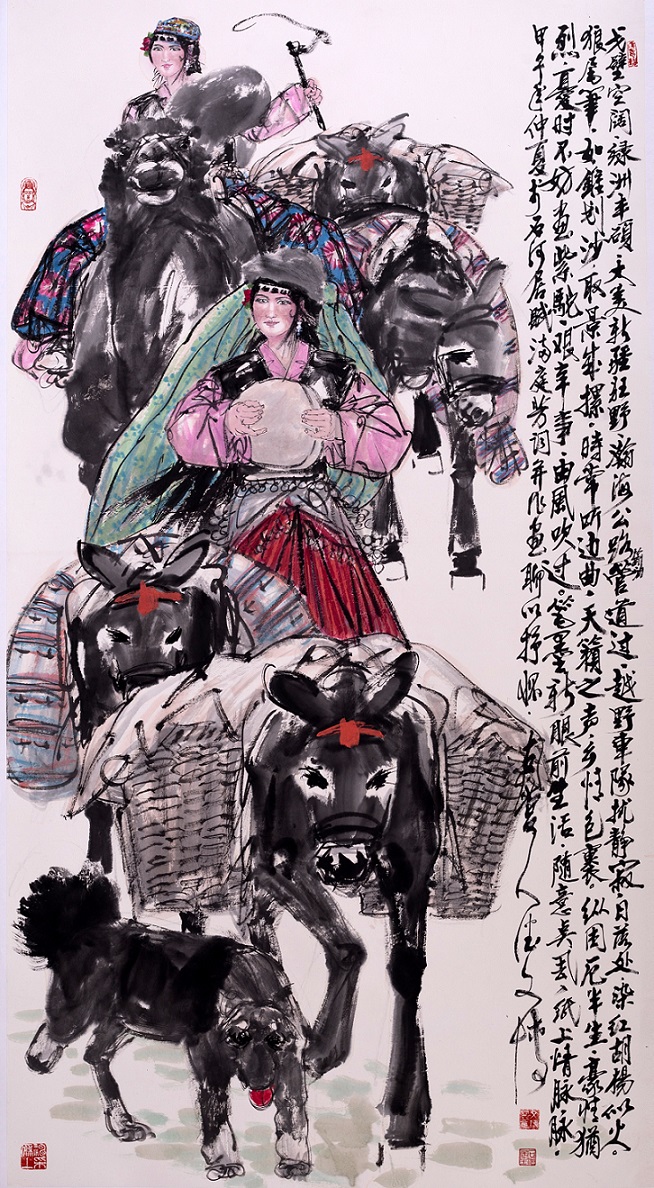 戈壁空阔、绿洲丰硕、大美新疆狂野、瀚海公路管道过、越野車隊扰静寂、日落处、染红胡楊似火。
狼尾筆、如錐划沙、取景我擇、時常听边曲、天籟之声、乡情包裹、纵困厄半生、豪性犹
烈、憂时不妨画紫駝、艰辛事、由風吹过。笔墨新、眼前生活、随意、纸上情脉脉。
甲午年仲夏于石河居赋满庭芳词并作画聊以抒怀